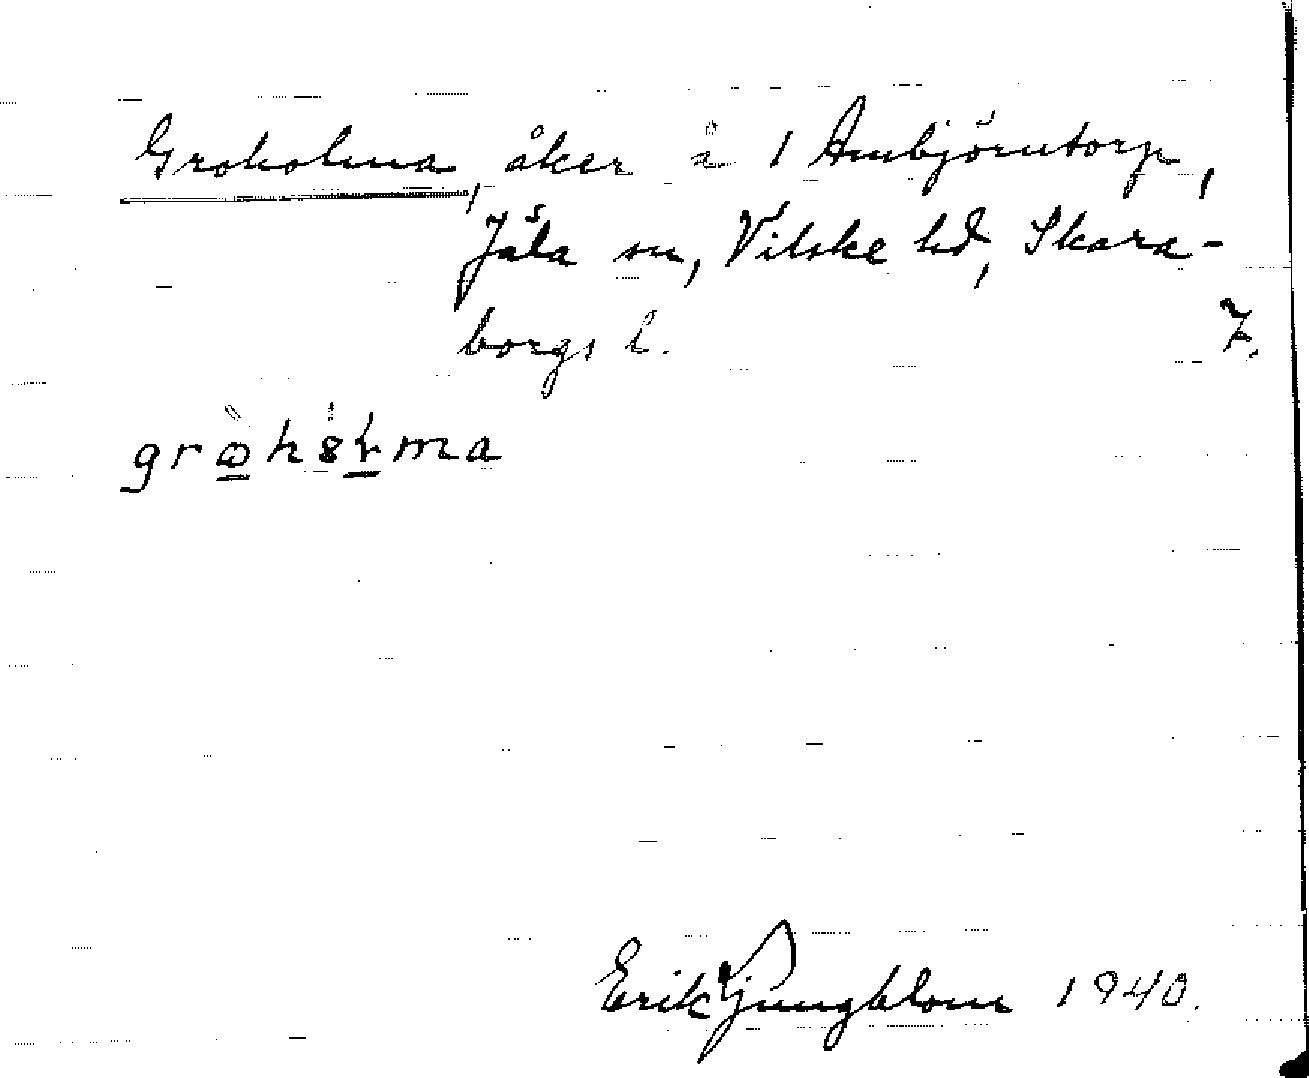 Groholma, åker å 1 Ambjörntorp,
Jäla sn, Vilske hd, Skara-
borgs l. 7.
Erik Ljungblom 1940.